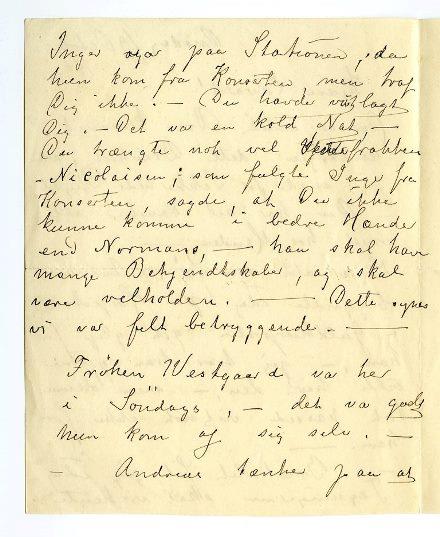 Inger var paa Stationen, da
hun kom fra Konserten men traf
Dig ikke. — Du havde vist lagt
Dig. — Det va en kold Nat, —
Du trængte nok vel frakken
– Nicolaisen; som fulgte Inge fra
Konserten, sagde, at Du ikke
kunne komme i bedre Hænder
end Normans, — han skal have
mange Bekjendtskaber, og skal
være velholden. — Dette synes
vi var felt betryggende. —
Frøken Westgaard va her
i Söndags, — det va godt
hun kom af sig selv. —
– Andreas tænker paa at